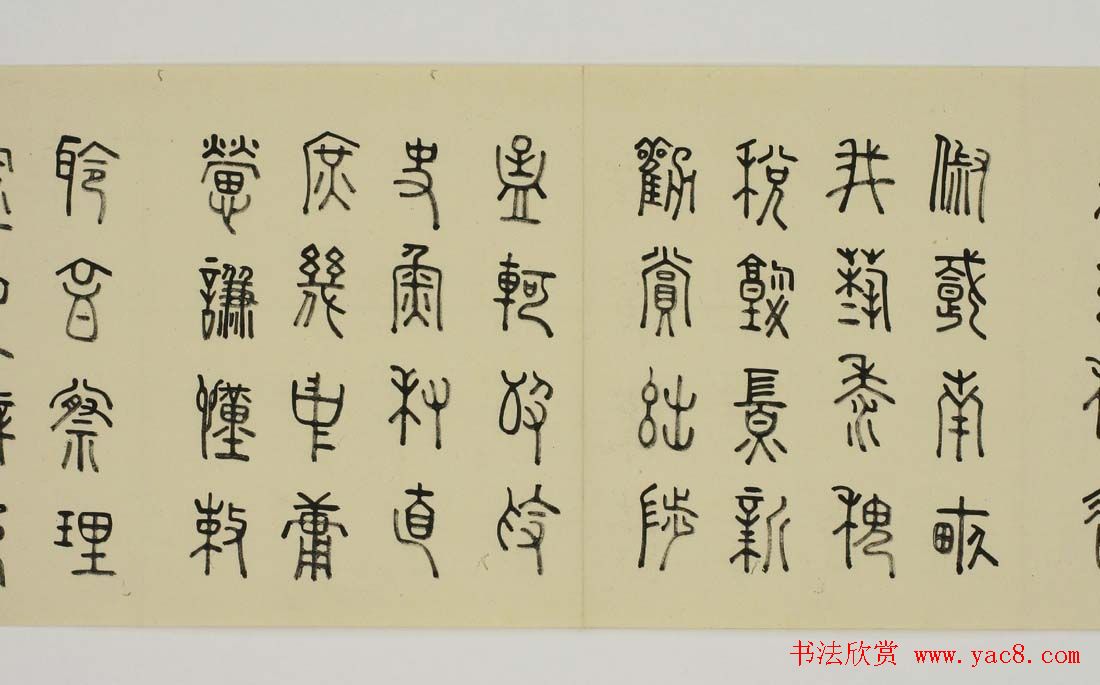 俶載南畝
我藝黍稷
稅熟貢新
勸賞黜陟
孟軻
史魚秉直
庶幾中庸
勞謙謹敕
聆音察理
书法欣赏 www.yac8.com